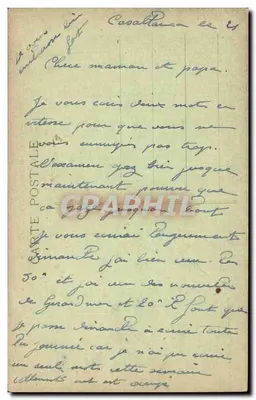 Casablanca le 21
je vous
fort
Chère maman et papa.
Je vous écris deux mots en
vitesse pour que vous ne
vous ennuyez pas trop.
L'examen bien jusque
maintenant pourvu que
ça jusqu'au bout
Je vous écrirai longuement
dimanche j'ai bien reçu les
30" et j'ai eu des nouvelles
de Gérardmer et 20" Il faut que
je passe dimanche à écrire toute
la journée car je n'ai pu écrire
un seul mot cette semaine
est occupé
CARTE POSTALE